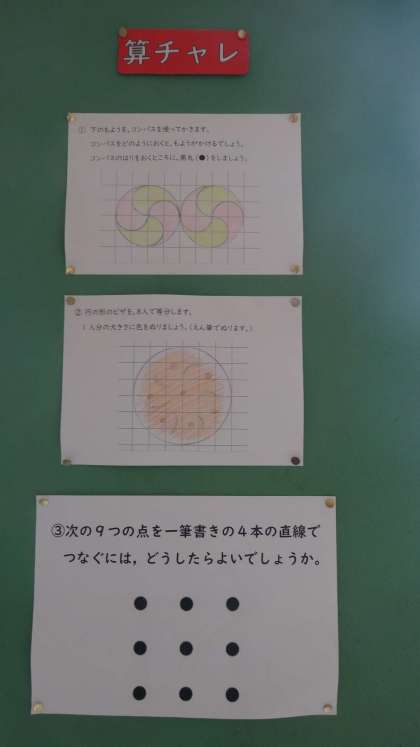 算チャレ
① 下のもようを、コンパスを使ってかきます。
コンパスをどのようにおくと、もようがかけるでしょう。
コンパスのはりをおくところに、黒丸(●)をしましょう。
② 円の形のピザを、8人で等分します。
1人分の大きさに色をぬりましょう。(えん筆でぬります。)
③次の9つの点を一筆書きの4本の直線で
つなぐには，どうしたらよいでしょうか。